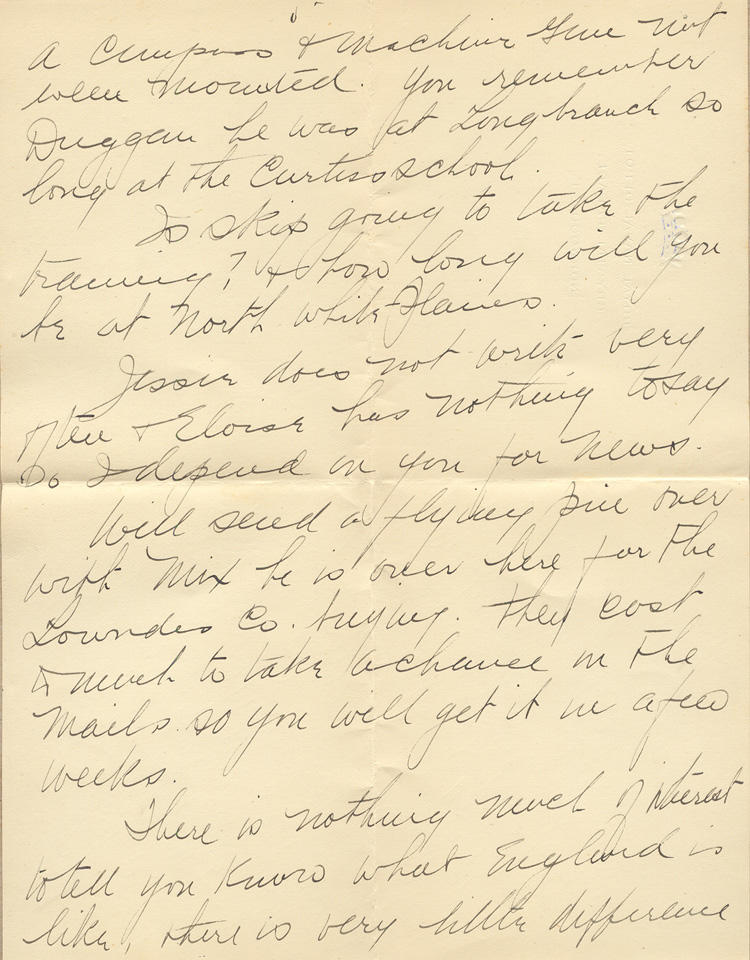 A Compass & Machine Gun not
even mounted. You remember
Duggan he was at Longbranch so
long at the Curtiss school.
Is Skip going to take the
training? & how long will you
be at North White Plains.
Jessie does not write very
often & Eloise has nothing to say
so I depend on you for news.
Will send a flying pin over
with Mix he is over here for the
Lowndes Co. buying. They cost
to much to take a chance in the
Mails so you will get it in a few
weeks.
There is nothing much of interest
to tell you know what England is
like, there is very little difference